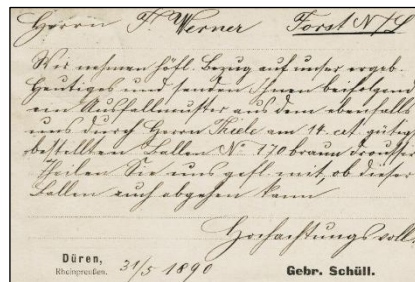 Herrn F. Werner Forst N/L
Wir nehmen höfl. Bezug auf unser ergeb.
Heutiges und senden Ihnen beifolgend
ein Ausfallmuster aus dem ebenfalls
uns durch Herrn Thiele am 14. cct. gütigst
bestellten Ballen No 170 braun
Theilen Sie uns gefl. mit, ob dieser
Ballen auch abgehen kann
Hochachtungsvoll
Düren,
Rheinpreußen. 31/5 1890 Gebr. Schüll.